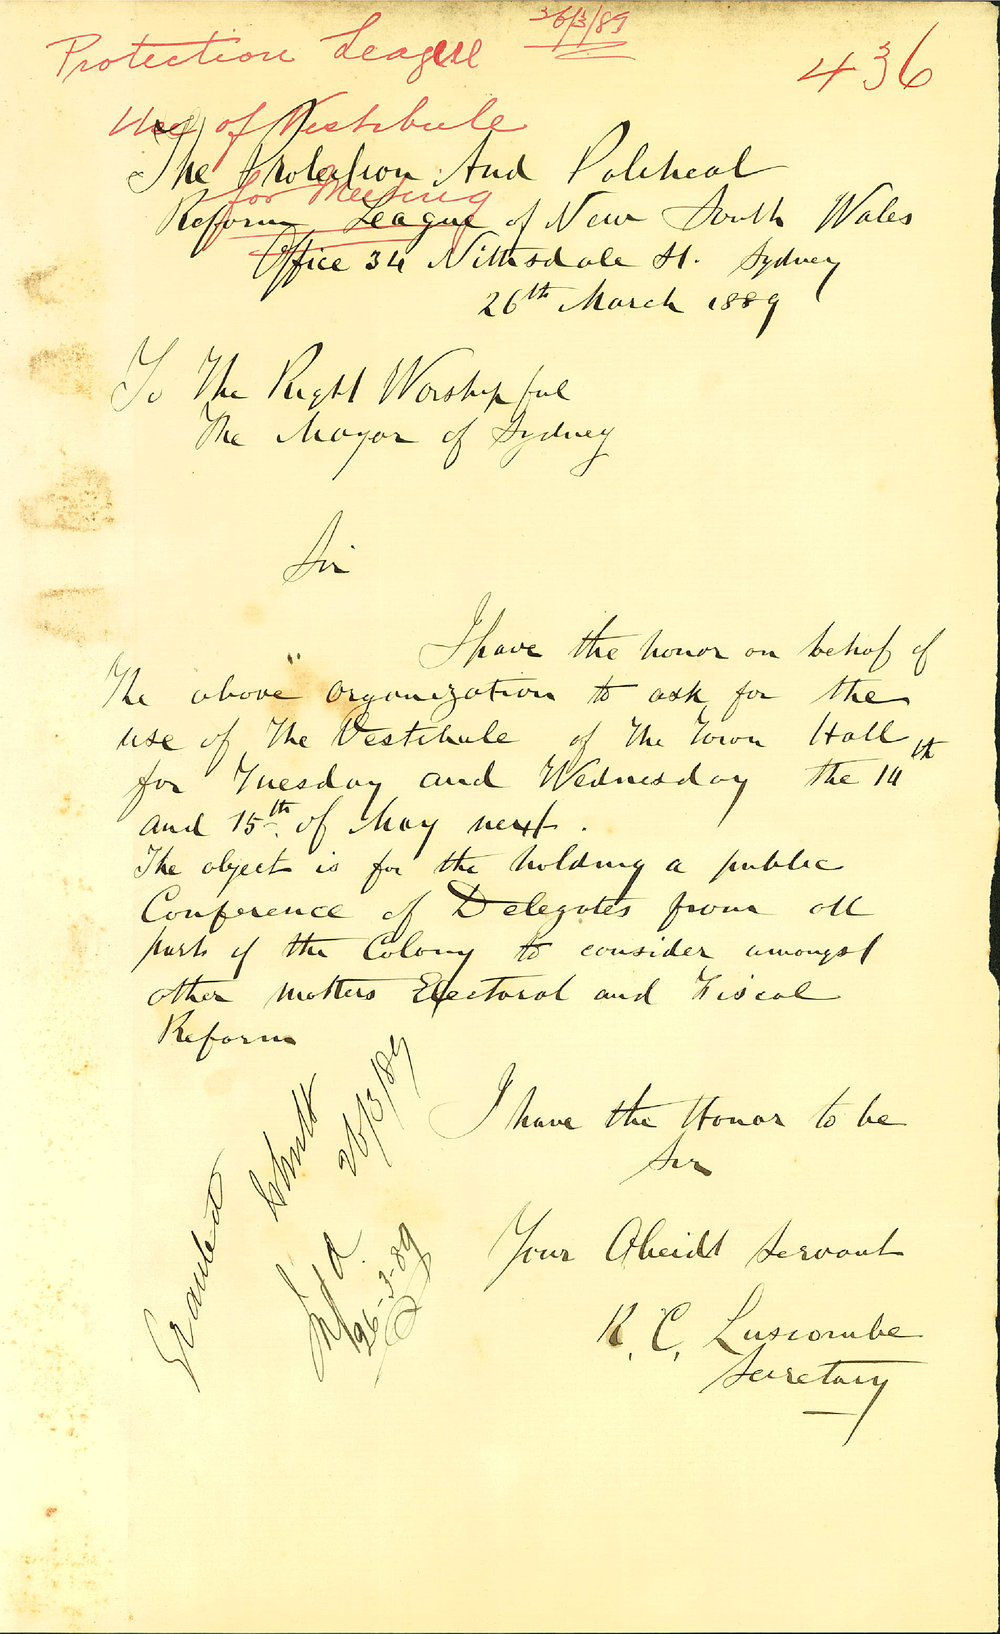 Protection League 26/3/89
436
Use of Vestibule
for Meeting
The Protection And Political
Reform League of New South Wales
Office 34 Nithsdale St. Sydney
26th March 1889
To The Right Worshipful
The Mayor of Sydney
Sir
I have the honor on behalf of
The above organization to ask for the
use of The Vestibule of The Town Hall
for Tuesday and Wednesday the 14th
and 15th of May next.
The object is for the holding a public
Conference of Delegates from all
parts of the Colony to consider amongst
other matters Electoral and Fiscal
Reform
I have the Honor to be
Sir
Your Obeidt Servant
R. C. Luscombe
Secretary
Granted
26/3/89
26-3-89